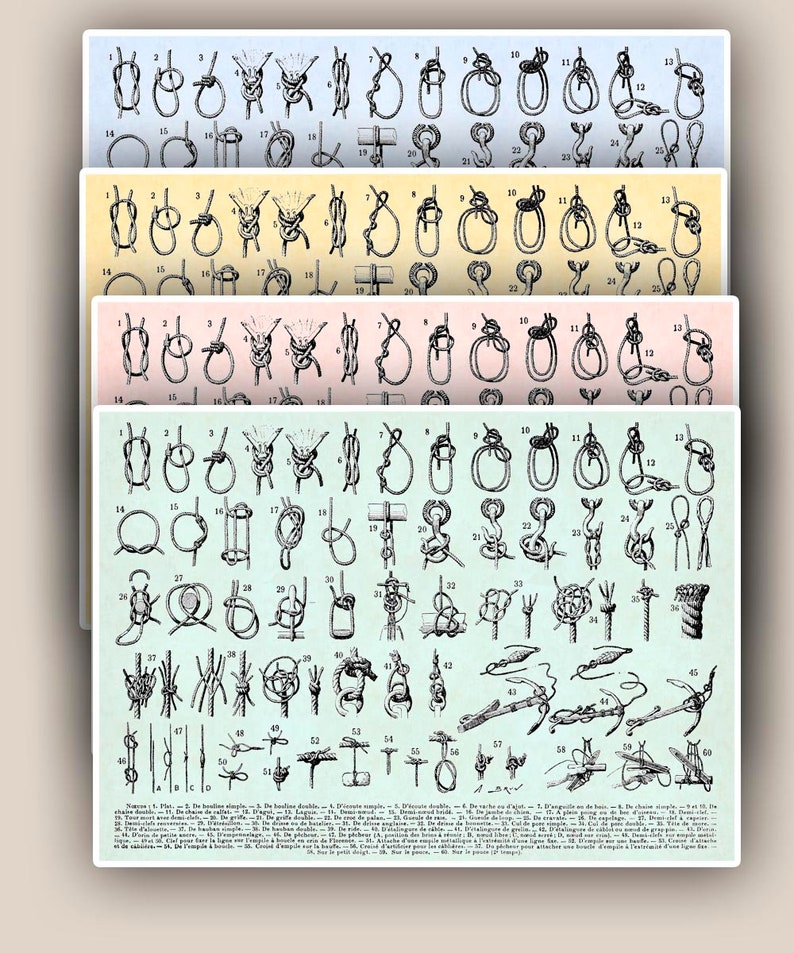 1 2 3 4 5 6 7 8 9 10 11 12 13
14 15 16 17 18 19 20 21 22 23 24 25
1 2 3 4 5 6 7 8 9 10 11 12 13
14 15 16 17 18 19 20 21 22 23 24 25
1 2 3 4 5 6 7 8 9 10 11 12 13
14 15 16 17 18 19 20 21 22 23 24 25
1 2 3 4 5 6 7 8 9 10 11 12 13
14 15 16 17 18 19 20 21 22 23 24 25
26 27 28 29 30 31 32 33 34 35 36
37 38 39 40 41 42 43 44 45
46 A B 47 C D 48 49 50 51 52 53 54 55 56 57 58 59 60
A BRUN
NŒUDS : 1. Plat. — 2. De bouline simple. — 3. De bouline double. — 4. D'écoute simple. — 5. D'écoute double. — 6. De vache ou d'ajut. — 7. D'anguille ou de bois. — 8. De chaise simple. — 9 et 10. De
chaise double. — 11. De chaise de calfat. — 12. D'agui. — 13. Laguis. — 14. Demi-nœud. — 15. Demi-nœud bridé. — 16. De jambe de chien. — 17. A plein poing ou de bec d'oiseau. — 18. Demi-clef. —
19. Tour mort avec demi-clefs. — 20. De griffe. — 21. De griffe double. — 22. De croc de palan. — 23. Gueule de raie. — 24. Gueule de loup. — 25. De cravate. — 26. De capelage. — 27. Demi-clef à capeler. —
28. Demi-clefs renversées. — 29. D'étrésillon. — 30. De drisse ou de batelier. — 31. De drisse anglaise. — 32. De drisse de bonnette. — 33. Cul de porc simple. — 34. Cul de porc double. — 35. Tête de more. —
36. Tête d'alouette. — 37. De hauban simple. — 38. De hauban double. — 39. De ride. — 40. D'étalingure de câble. — 41. D'étalingure de grelin. — 42. D'étalingure de câblot ou nœud de grappin. — 43. D'orin.
— 44. D'orin de petite ancre. — 45. D'empennelage. — 46. De pêcheur. — 47. De pêcheur (A, position des brins à réunir ; B, nœud libre ; C, nœud serré ; D, nœud sur crin). — 48. Demi-clefs sur empile métal-
lique. — 49 et 50. Clef pour fixer la ligne sur l'empile à boucle en crin de Florence. — 51. Attache d'une empile métallique à l'extrémité d'une ligne fixe. — 52. D'empile sur une bauffe. — 53. Croisé d'attache
et de câblière. — 54. De l'empile à boucle. — 55. Croisé d'empile sur la bauffe. — 56. Croisé d'artificier pour les câblières. — 57. Du pêcheur pour attacher une boucle d'empile à l'extrémité d'une ligne fixe. —
58. Sur le petit doigt. — 59. Sur le pouce. — 60. Sur le pouce (2e temps).